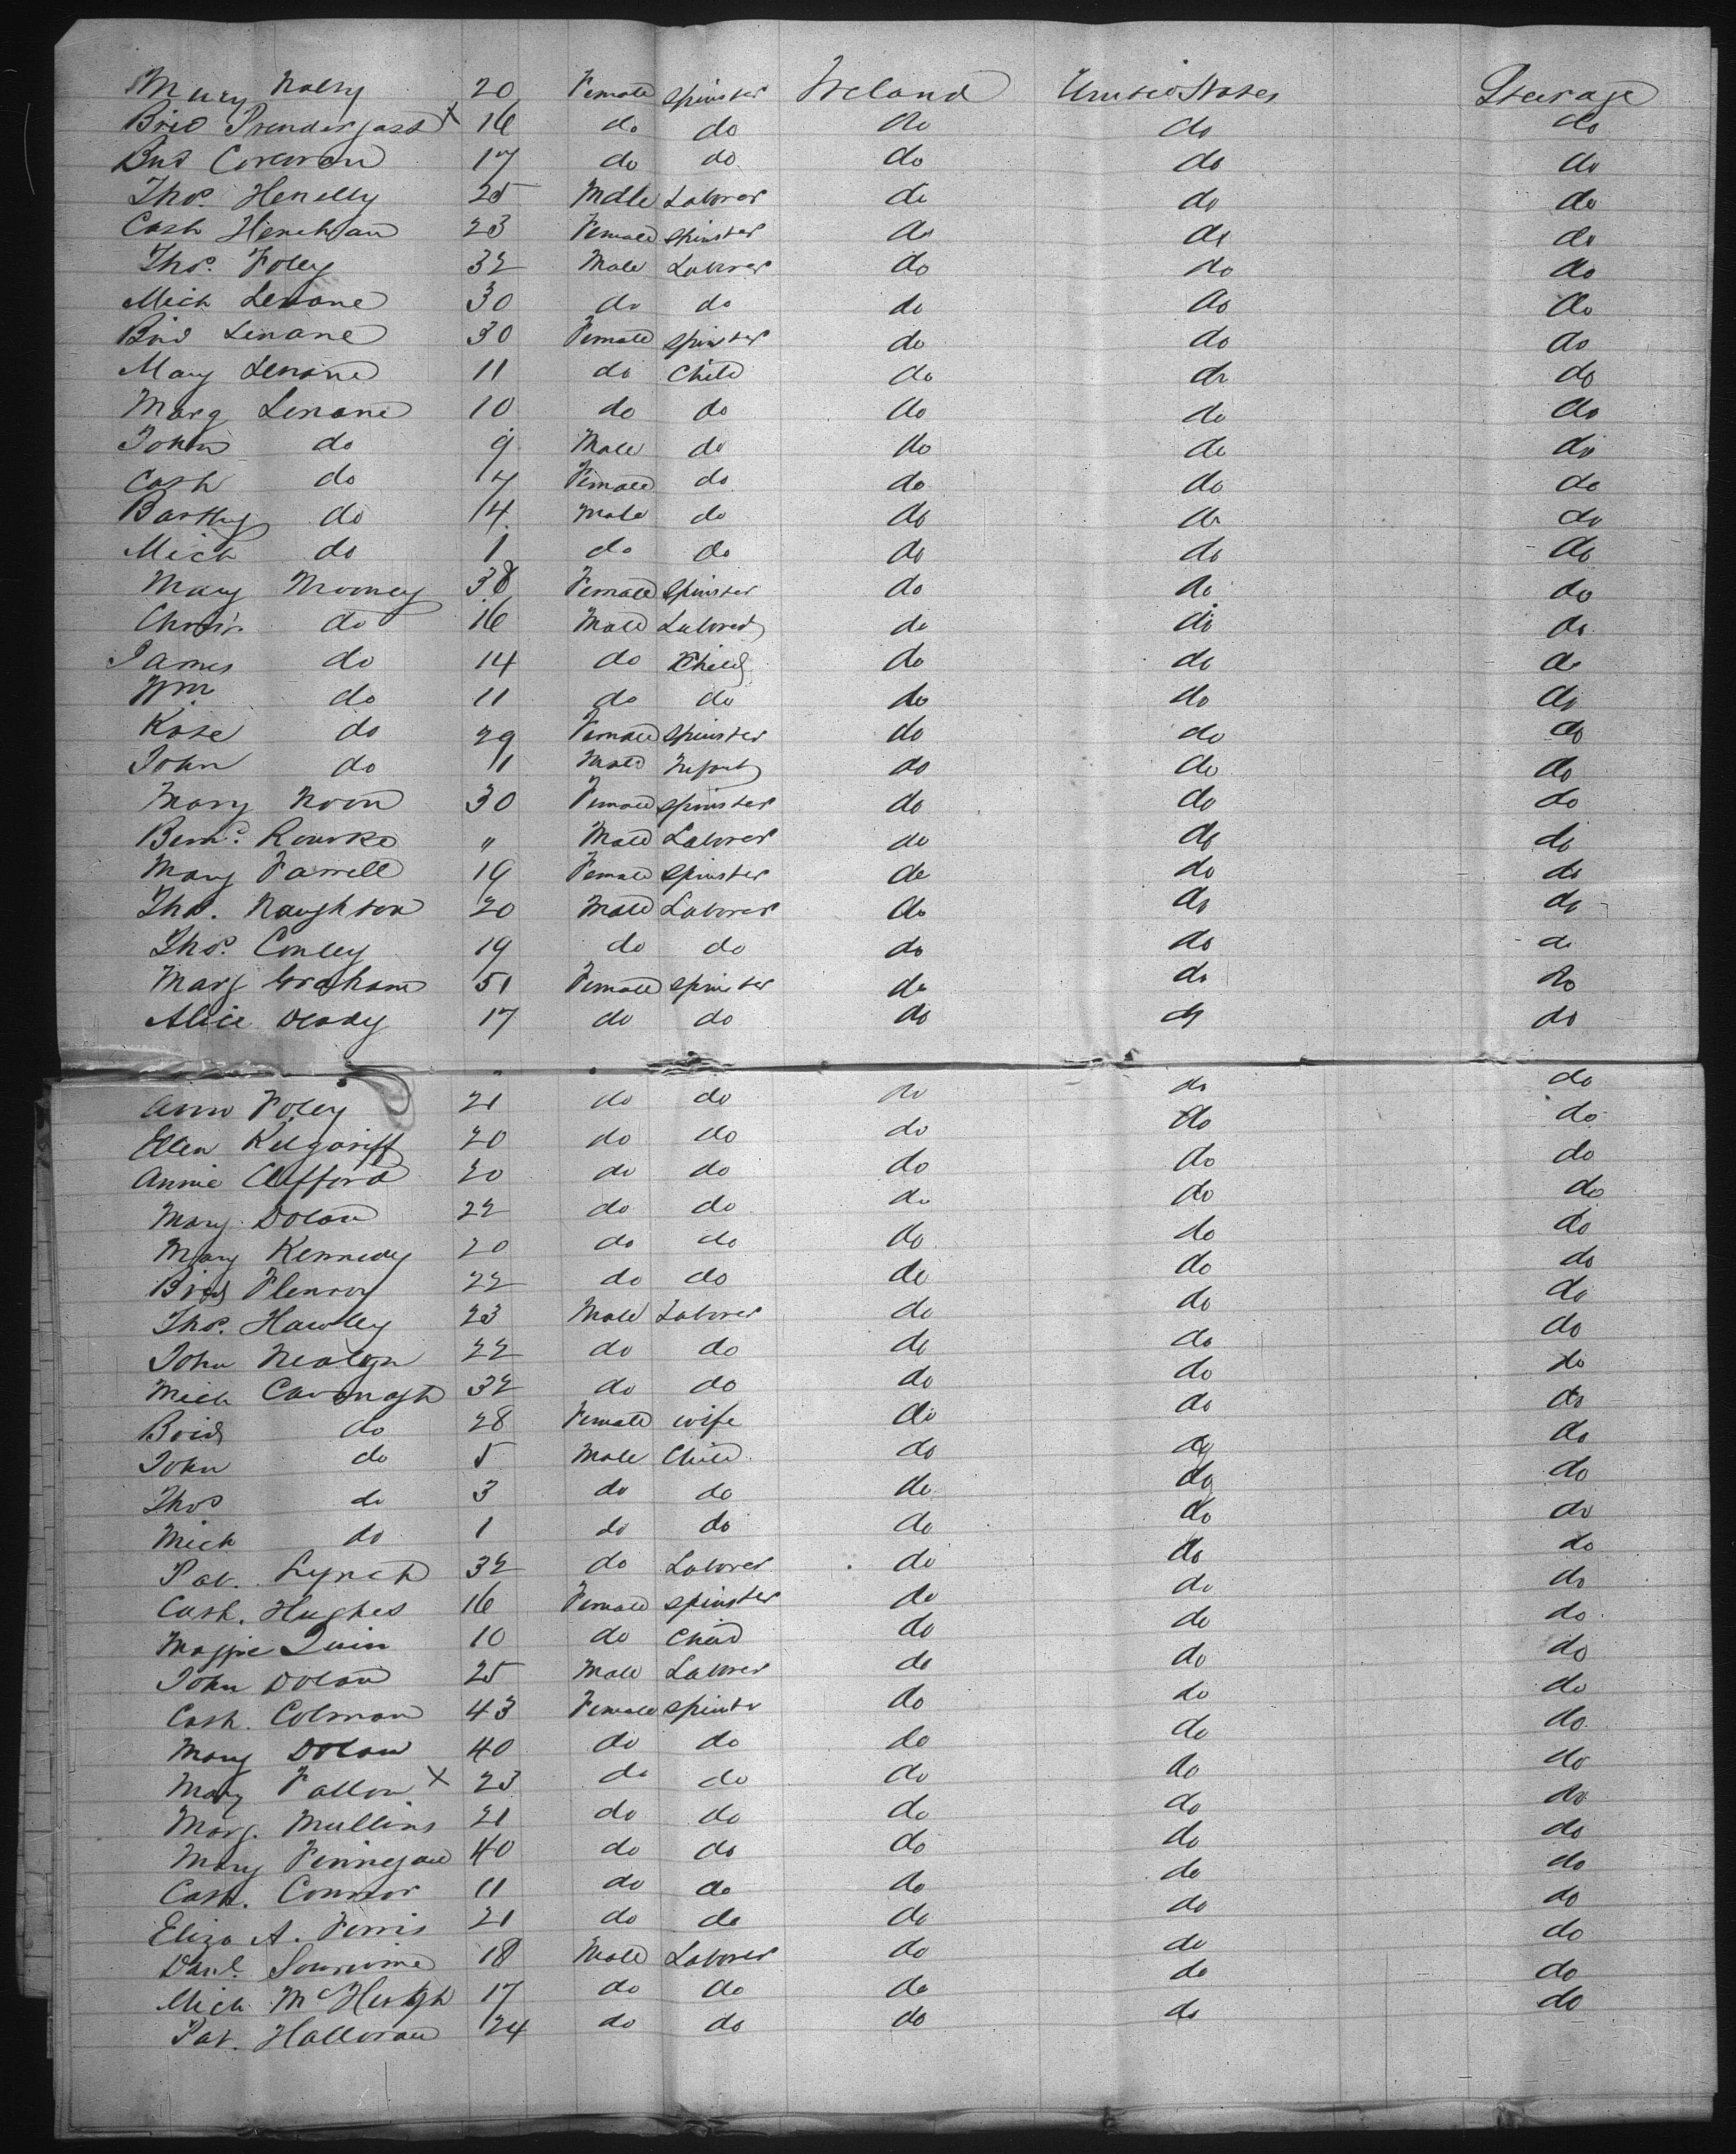 Mary Nalty 20 Female Spinster Ireland United States Steerage
Brid Prendergast x 16 do do do do do
Brid Corcoran 17 do do do do do
Thos. Henelly 25 Male Laborer do do do
Cath Henehan 23 Female Spinster do do do
Thos. Foley 32 Male Laborer do do do
Mich Lenane 30 do do do do do
Brid Lenane 30 Female Spinster do do do
Mary Lenane 11 do Child do do do
Marg Lenane 10 do do do do do
John do 9 Male do do do do
Cath do Female do do do do
Barthy do 4 Male do do do do
Mich do 1 do do do do do
Mary Mooney 38 Female Spinster do do do
Chrisr. do 16 Male Laborer do do do
James do 14 do Child do do do
Wm do 11 do do do do do
Rose do 29 Female Spinster do do do
John do 1 Male Infant do do do
Mary Noon 30 Female Spinster do do do
Bernd. Rourke " Male Laborer do do do
Mary Farrell 19 Female Spinster do do do
Thos. Naughton 20 Male Laborer do do do
Thos. Conley 19 do do do do do
Marg Graham 51 Female Spinster do do do
Alice Deady 17 do do do do do
Ann Foley 21 do do do do do
Ellen Kilgariff 20 do do do do do
Annie Clifford 20 do do do do do
Mary Dolan 22 do do do do do
Mary Kennedy 20 do do do do do
Brid 22 do do do do do
Thos. Hawley 23 Male Laborer do do do
John 22 do do do do do
Mich Cavenagh 32 do do do do do
Brid do 28 Female wife do do do
John do 5 Male Child do do do
Thos do 3 do do do do do
Mich do 1 do do do do do
Pat. Lynch 32 do Laborer do do do
Cath. Hughes 16 Female Spinster do do do
Maggie Quin 10 do Child do do do
John Dolan 25 Male Laborer do do do
Cath. Colman 43 Female Spinster do do do
Mary Dolan 40 do do do do do
Mary Fallon x 23 do do do do do
Marg. Mullins 21 do do do do do
Mary Finnegan 40 do do do do do
Cath. Connor 11 do do do do do
Eliza A. Ferris 21 do do do do do
Danl. 18 Male Laborer do do do
Mich McHugh 17 do do do do do
Pat. Halloran 24 do do do do do